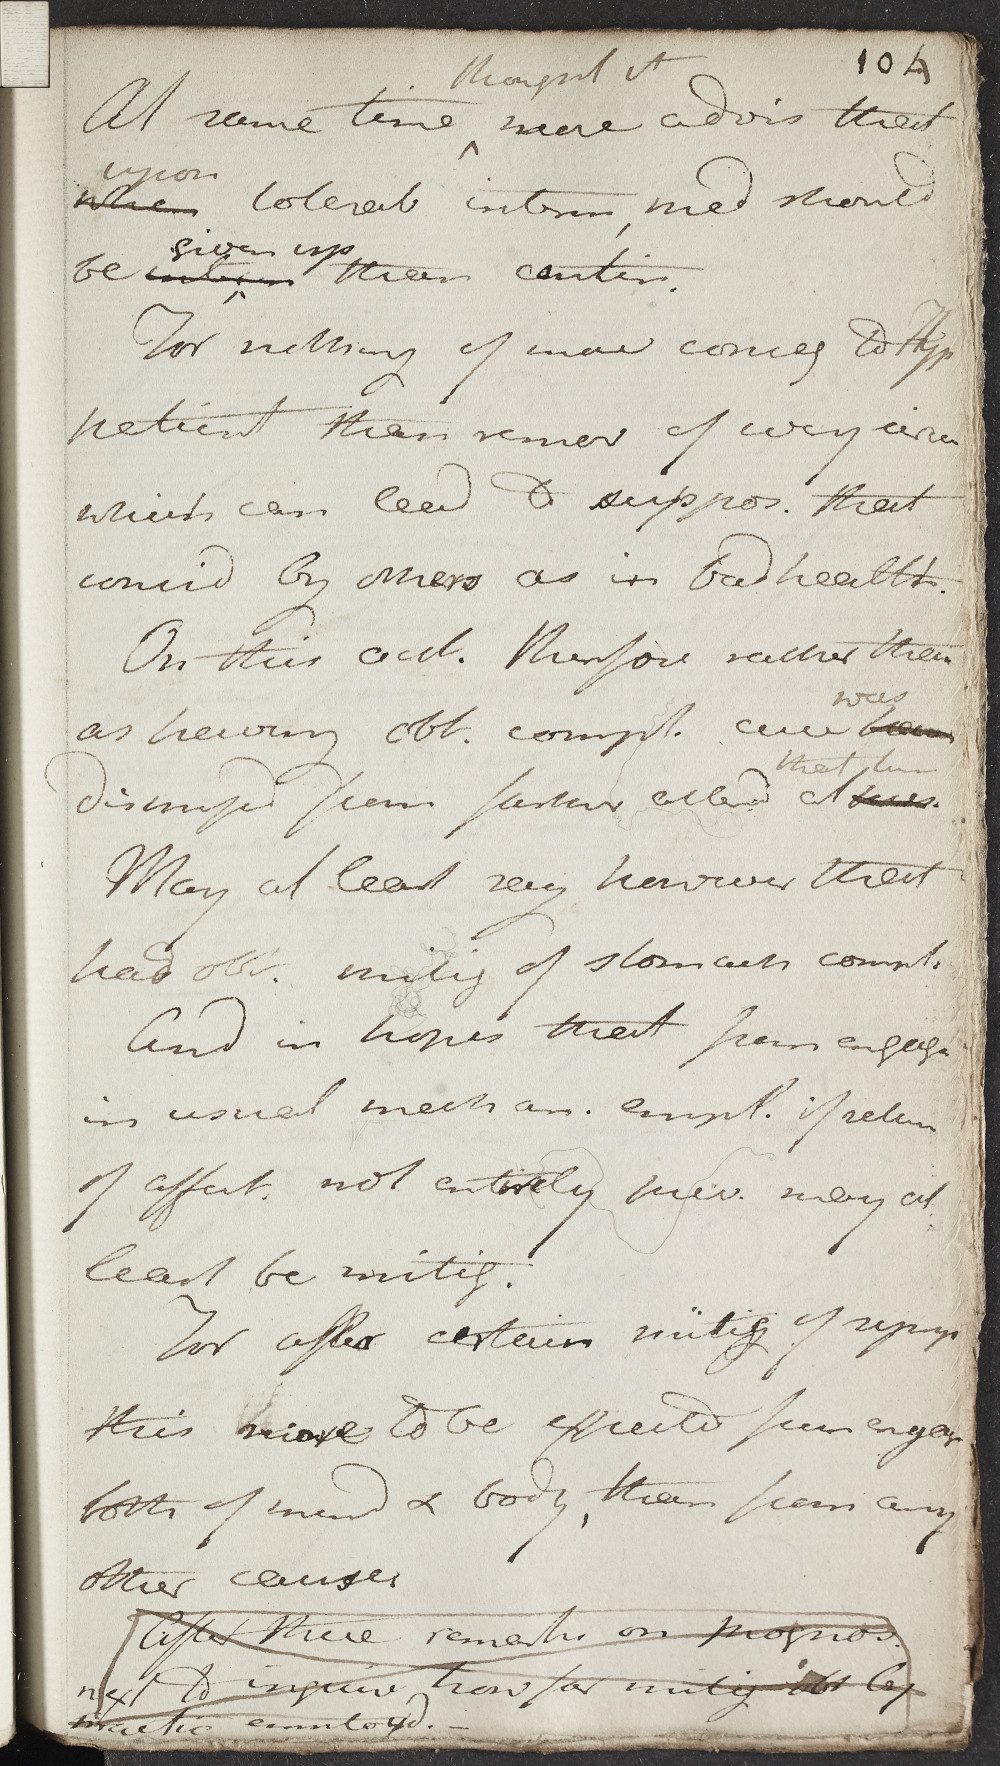 104
thought it
At same time ^ more advis that
upon
when tolerab interm, med should
be given up than contin.
For nothing of more conseq to Hyp
patient than remov of every circum
which can lead to suppos. that
consid by others as in bad health.
On this acct. therefore rather than
was
as having obt. compl. cure been
that
dismissed from farther attend at
May at least say however that
had obt. mitig of stomach compl.
And in hopes that from engage
in usual mechan. empl. if return
of affect. not entirely prev. may at
least be mitig.
For after certain mitig of symp
this more to be expected from engage
both of mind & body, than from any
other causes
After these remarks on prognos.
next to inquire how far mitig obt by
practic employd. —